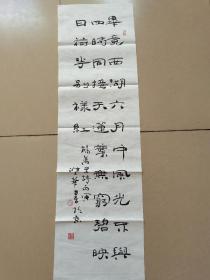 畢竟西湖六月中風光不與
四時同接天蓮葉無窮碧映
日荷別樣紅
楊萬里詩